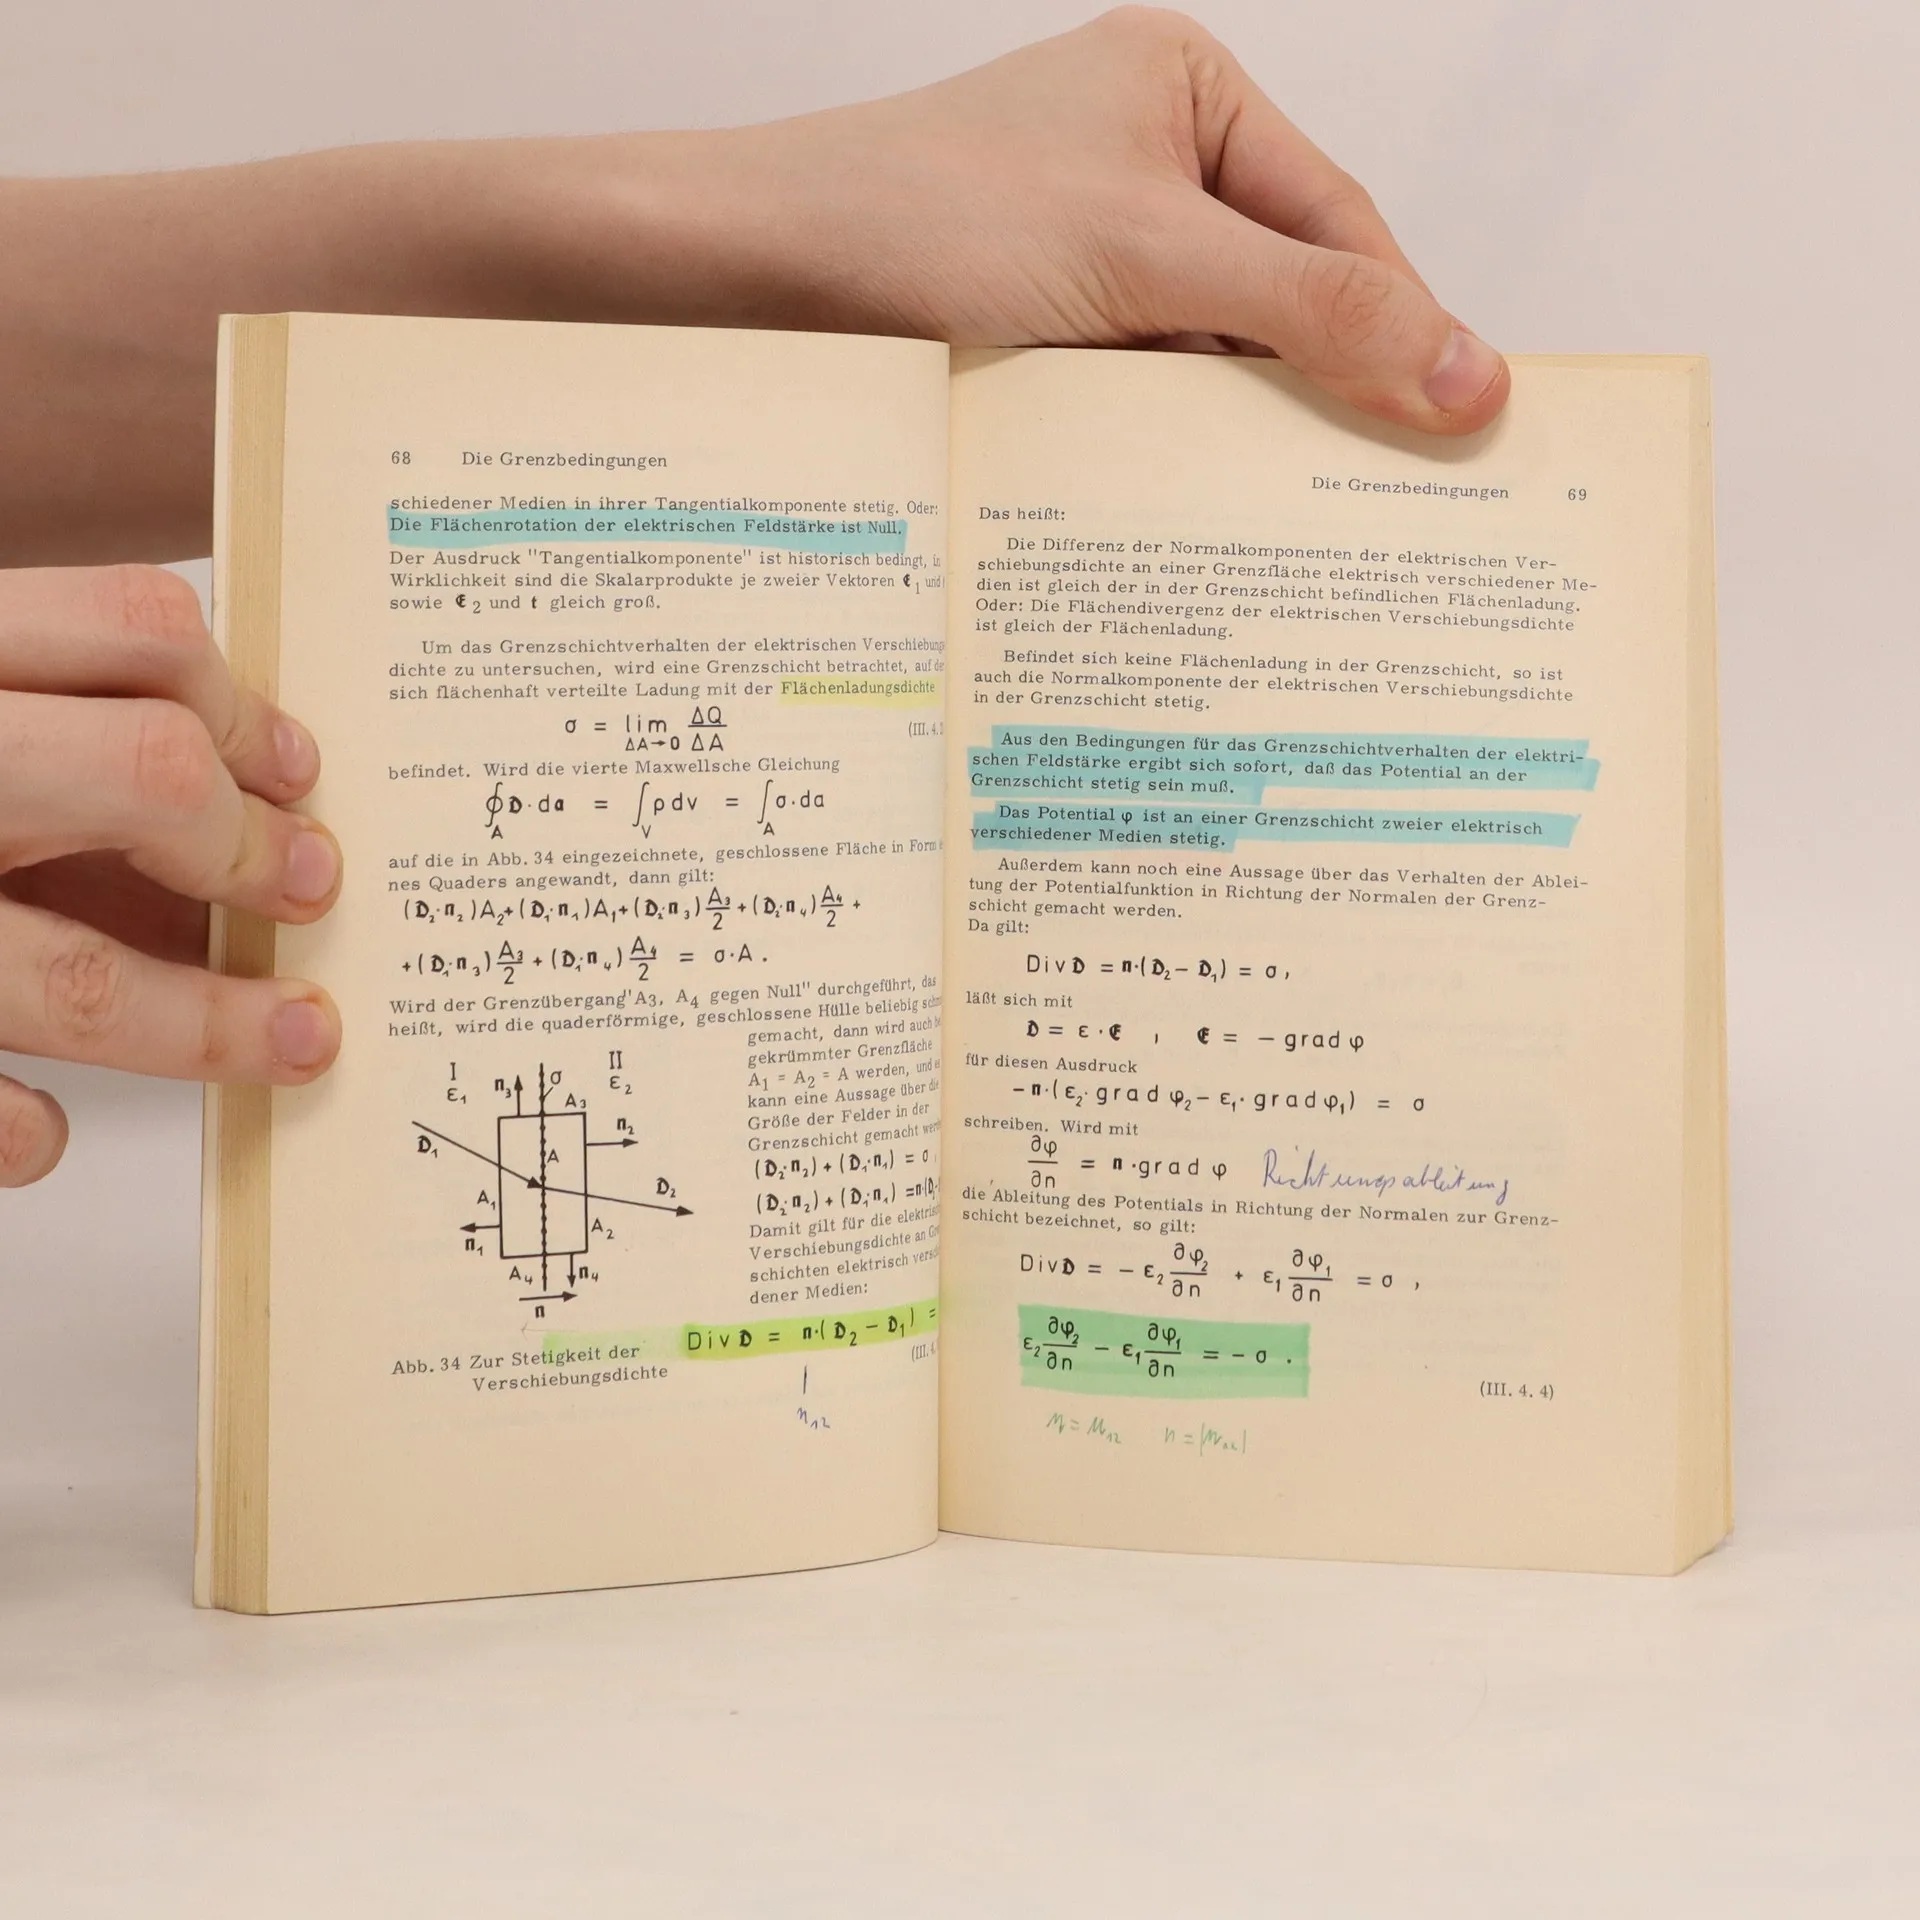 68 Die Grenzbedingungen
schiedener Medien in ihrer Tangentialkomponente stetig. Oder:
Die Flächenrotation der elektrischen Feldstärke ist Null.
Der Ausdruck "Tangentialkomponente" ist historisch bedingt, in
Wirklichkeit sind die Skalarprodukte je zweier Vektoren 𝕰₁ und
sowie 𝕰₂ und t gleich groß.
Um das Grenzschichtverhalten der elektrischen Verschiebungs
dichte zu untersuchen, wird eine Grenzschicht betrachtet, auf de
sich flächenhaft verteilte Ladung mit der Flächenladungsdichte
σ = lim ΔA→0 ΔQ/ΔA (III. 4.3
befindet. Wird die vierte Maxwellsche Gleichung
∮_A 𝕯·da = ∫_V ρdv = ∫_A σ·da
auf die in Abb. 34 eingezeichnete, geschlossene Fläche in Form
nes Quaders angewandt, dann gilt:
(𝕯₂·n₂)A₂+(𝕯₁·n₁)A₁+(𝕯₂·n₃)A₃/2+(𝕯₂·n₄)A₄/2 +
+(𝕯₁·n₃)A₃/2+(𝕯₁·n₄)A₄/2 = σ·A.
Wird der Grenzübergang"A₃, A₄ gegen Null" durchgeführt, das
heißt, wird die quaderförmige, geschlossene Hülle beliebig
gemacht, dann wird auch
gekrümmter Grenzfläche
A₁ = A₂ = A werden, und
kann eine Aussage über die
Größe der Felder in der
Grenzschicht gemacht
(𝕯₂·n₂)+(𝕯₁·n₁) = σ
(𝕯₂·n₂)+(𝕯₁·n₁) =n·(𝕯
Damit gilt für die elektris
Verschiebungsdichte an
schichten elektrisch vers
dener Medien:
Div𝕯 = n·(𝕯₂ − 𝕯₁) =
(III. 4.
n₁₂
I II
ε₁ n₃ σ ε₂
A₃
n₂
𝕯₁ A
𝕯₂
A₁
A₂
n₁
A₄ n₄
n
Abb. 34 Zur Stetigkeit der
Verschiebungsdichte
Die Grenzbedingungen 69
Das heißt:
Die Differenz der Normalkomponenten der elektrischen Ver-
schiebungsdichte an einer Grenzfläche elektrisch verschiedener Me-
dien ist gleich der in der Grenzschicht befindlichen Flächenladung.
Oder: Die Flächendivergenz der elektrischen Verschiebungsdichte
ist gleich der Flächenladung.
Befindet sich keine Flächenladung in der Grenzschicht, so ist
auch die Normalkomponente der elektrischen Verschiebungsdichte
in der Grenzschicht stetig.
Aus den Bedingungen für das Grenzschichtverhalten der elektri-
schen Feldstärke ergibt sich sofort, daß das Potential an der
Grenzschicht stetig sein muß.
Das Potential φ ist an einer Grenzschicht zweier elektrisch
verschiedener Medien stetig.
Außerdem kann noch eine Aussage über das Verhalten der Ablei-
tung der Potentialfunktion in Richtung der Normalen der Grenz-
schicht gemacht werden.
Da gilt:
Div𝕯 = n·(𝕯₂ − 𝕯₁) = σ,
läßt sich mit
𝕯 = ε·𝕰 , 𝕰 = − grad φ
für diesen Ausdruck
−n·(ε₂·grad φ₂ − ε₁·grad φ₁) = σ
schreiben. Wird mit
∂φ/∂n = n·grad φ Richtungsableitung
die Ableitung des Potentials in Richtung der Normalen zur Grenz-
schicht bezeichnet, so gilt:
Div𝕯 = − ε₂ ∂φ₂/∂n + ε₁ ∂φ₁/∂n = σ ,
ε₂ ∂φ₂/∂n − ε₁ ∂φ₁/∂n = − σ .
(III. 4. 4)